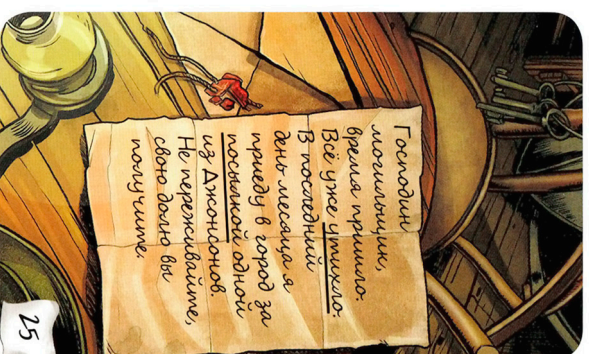 Господин
могильщик,
время пришло.
Всё уже утихло.
В последний
день месяца я
приеду в город за
посылкой одной
из Джонсонов.
Не переживайте,
свою долю вы
получите.
25